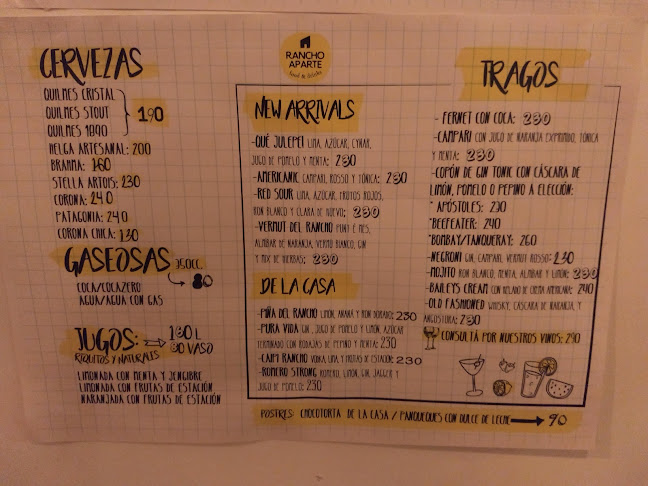 CERVEZAS
QUILMES CRISTAL
QUILMES STOUT
QUILMES 1890
190
HELGA ARTESANAL: 200
BRAHMA: 160
STELLA ARTOIS: 230
CORONA: 240
PATAGONIA: 240
CORONA CHICA: 130
GASEOSAS 350CC.
COCA/COCAZERO
AGUA/AGUA CON GAS
80
JUGOS:
RIQUITOS Y NATURALES
180 L
80 VASO
LIMONADA CON MENTA Y JENGIBRE
LIMONADA CON FRUTAS DE ESTACIÓN
NARANJADA CON FRUTAS DE ESTACIÓN
RANCHO
APARTE
NEW ARRIVALS
-QUÉ JULEPE! LIMA, AZÚCAR, CYNAR,
JUGO DE POMELO Y MENTA: 230
-AMERICANIC CAMPARI, ROSSO Y TÓNICA: 230
-RED SOUR LIMA, AZÚCAR, FRUTOS ROJOS,
RON BLANCO Y CLARA DE HUEVO: 230
-VERMUT DEL RANCHO PUNT E MES,
ALMIBAR DE NARANJA, VERMÚ BIANCO, GIN
Y MIX DE HIERBAS: 230
DE LA CASA
-PIÑA DEL RANCHO LIMÓN, ANANÁ Y RON DORADO: 230
-PURA VIDA GIN, JUGO DE POMELO Y LIMÓN, AZÚCAR
TERMINADO CON RODAJAS DE PEPINO Y MENTA: 230
-CAIPI RANCHO VODKA, LIMA Y FRUTAS DE ESTACIÓN: 230
-ROMERO STRONG ROMERO, LIMÓN, GIN, JAGGER Y
JUGO DE POMELO: 230
TRAGOS
- FERNET CON COCA: 230
-CAMPARI CON JUGO DE NARANJA EXPRIMIDO, TÓNICA
Y MENTA: 230
-COPÓN DE GIN TONIC CON CÁSCARA DE
LIMÓN, POMELO O PEPINO A ELECCIÓN:
* APÓSTOLES: 230
*BEEFEATER: 240
*BOMBAY/TANQUERAY: 260
-NEGRONI GIN, CAMPARI, VERMUT ROSSO: 230
-MOJITO RON BLANCO, MENTA, ALMIBAR Y LIMÓN: 230
-BAILEYS CREAM CON HELADO DE CREMA AMERICANA: 240
-OLD FASHIONED WHISKY, CÁSCARA DE NARANJA, Y
ANGOSTURA: 230
CONSULTÁ POR NUESTROS VINOS: 290
POSTRES: CHOCOTORTA DE LA CASA / PANQUEQUES CON DULCE DE LECHE 90